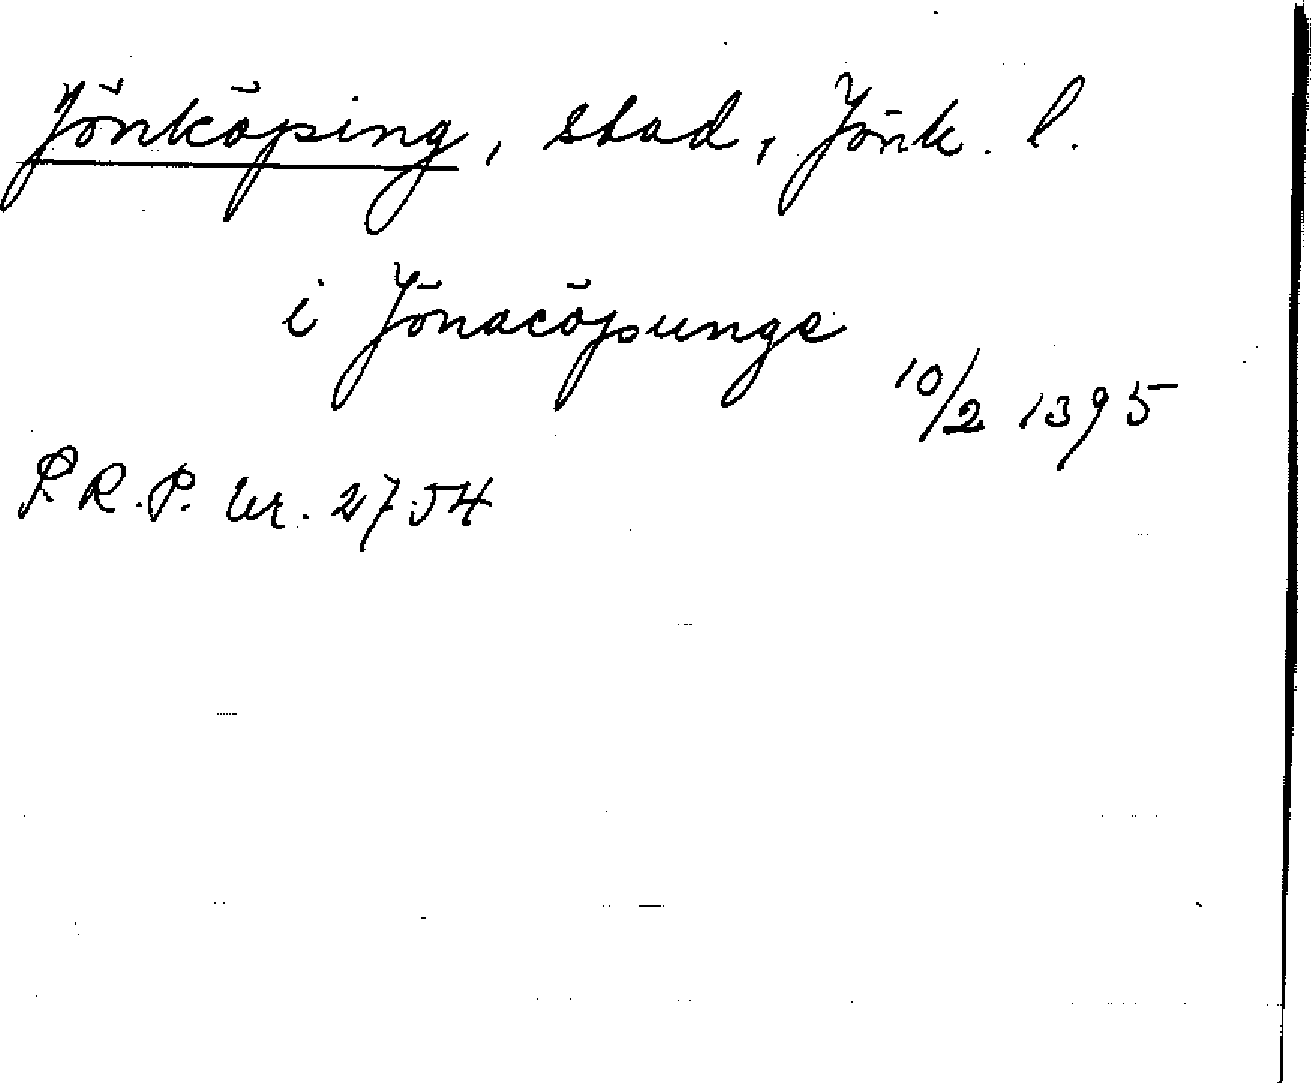 Jönköping, stad, Jönk. l.
i Jönacöpunge
10/2 1395
R.P. Nr. 2754